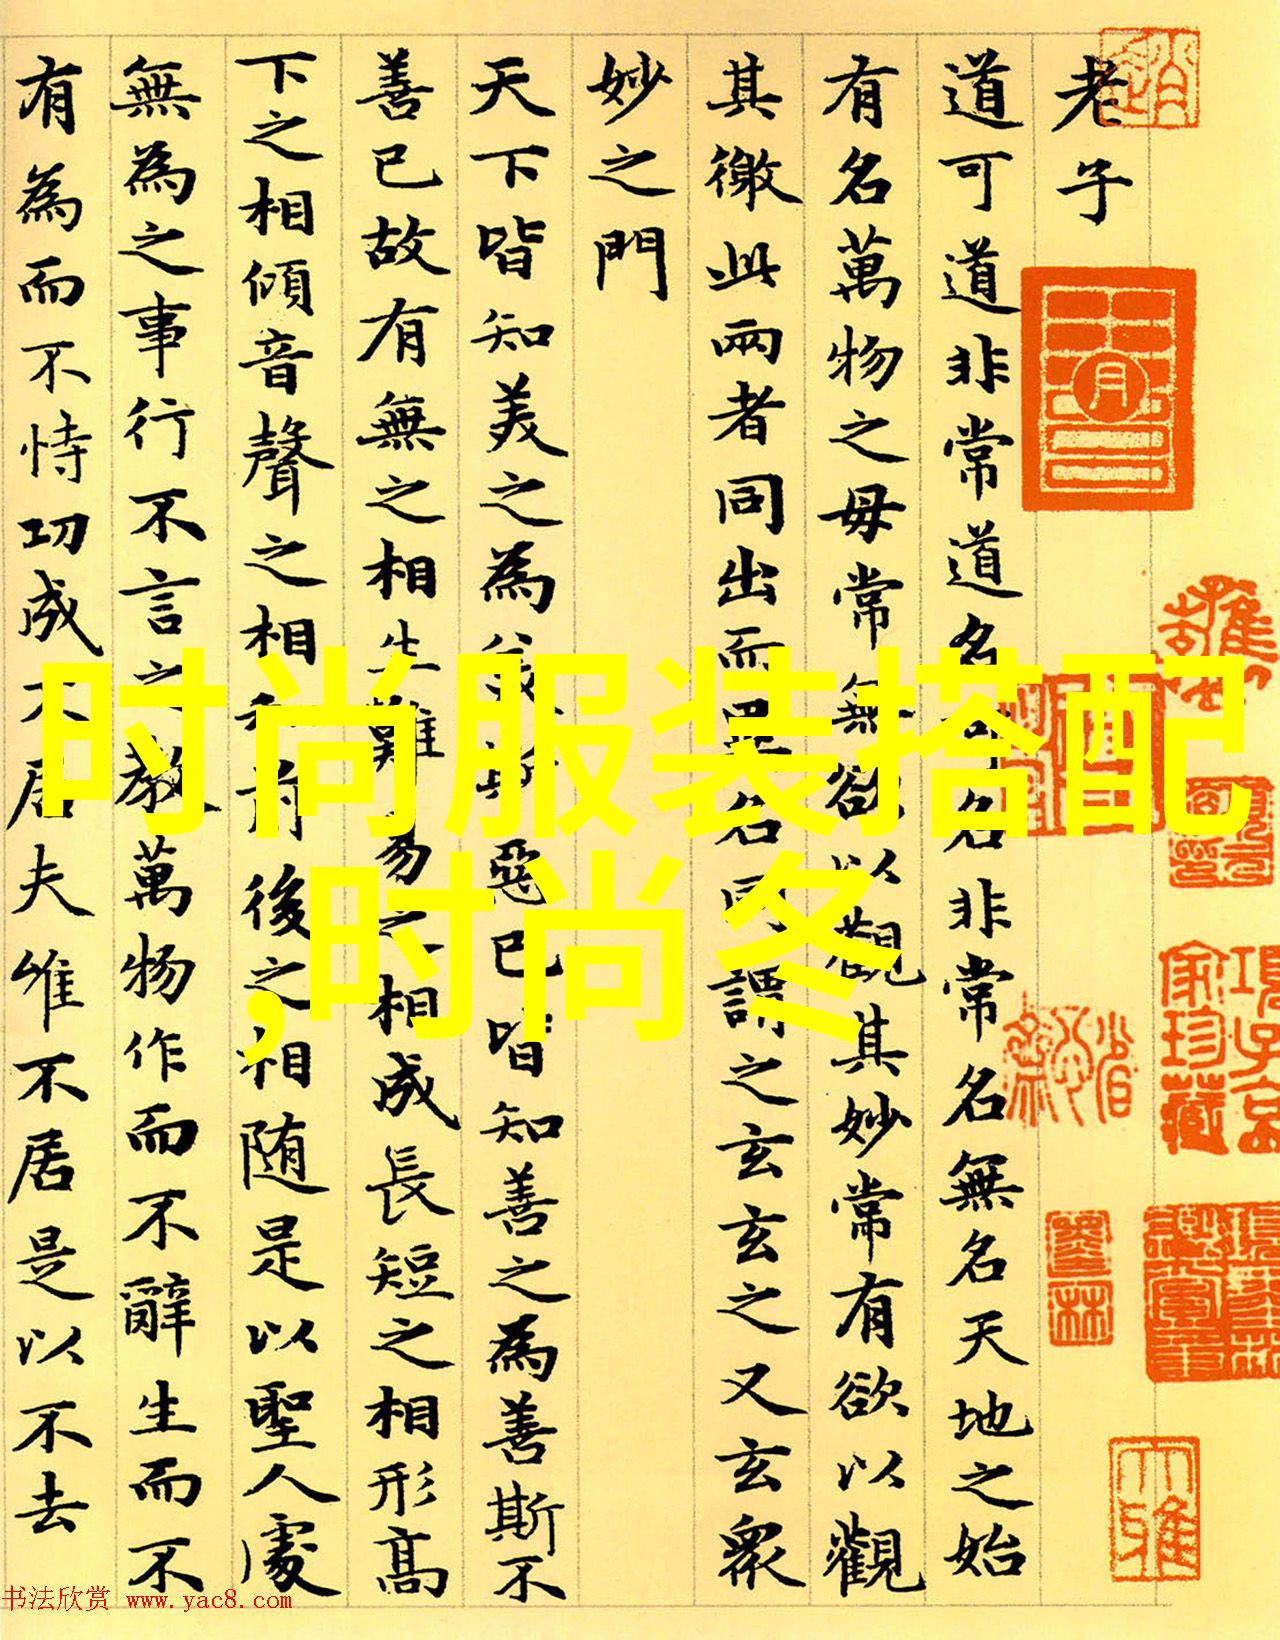 老子
道可道非常道名可名非常名無名天地之始
有名萬物之毋常無欲以觀其妙常有欲以觀
其徼此兩者同出而異名同謂之玄玄之又玄衆
妙之門
天下皆知美之為美斯惡已皆知善之為善斯不
善已故有無之相生難易之相成長短之相形高
下之相傾音聲之相和前後之相随是以聖人處
無為之事行不言之教萬物作而不辭生而不
有為而不恃功成不居夫唯不居是以不去
項子京家珍藏
时尚服装搭配
,时尚冬
书法欣赏 www.yac8.com